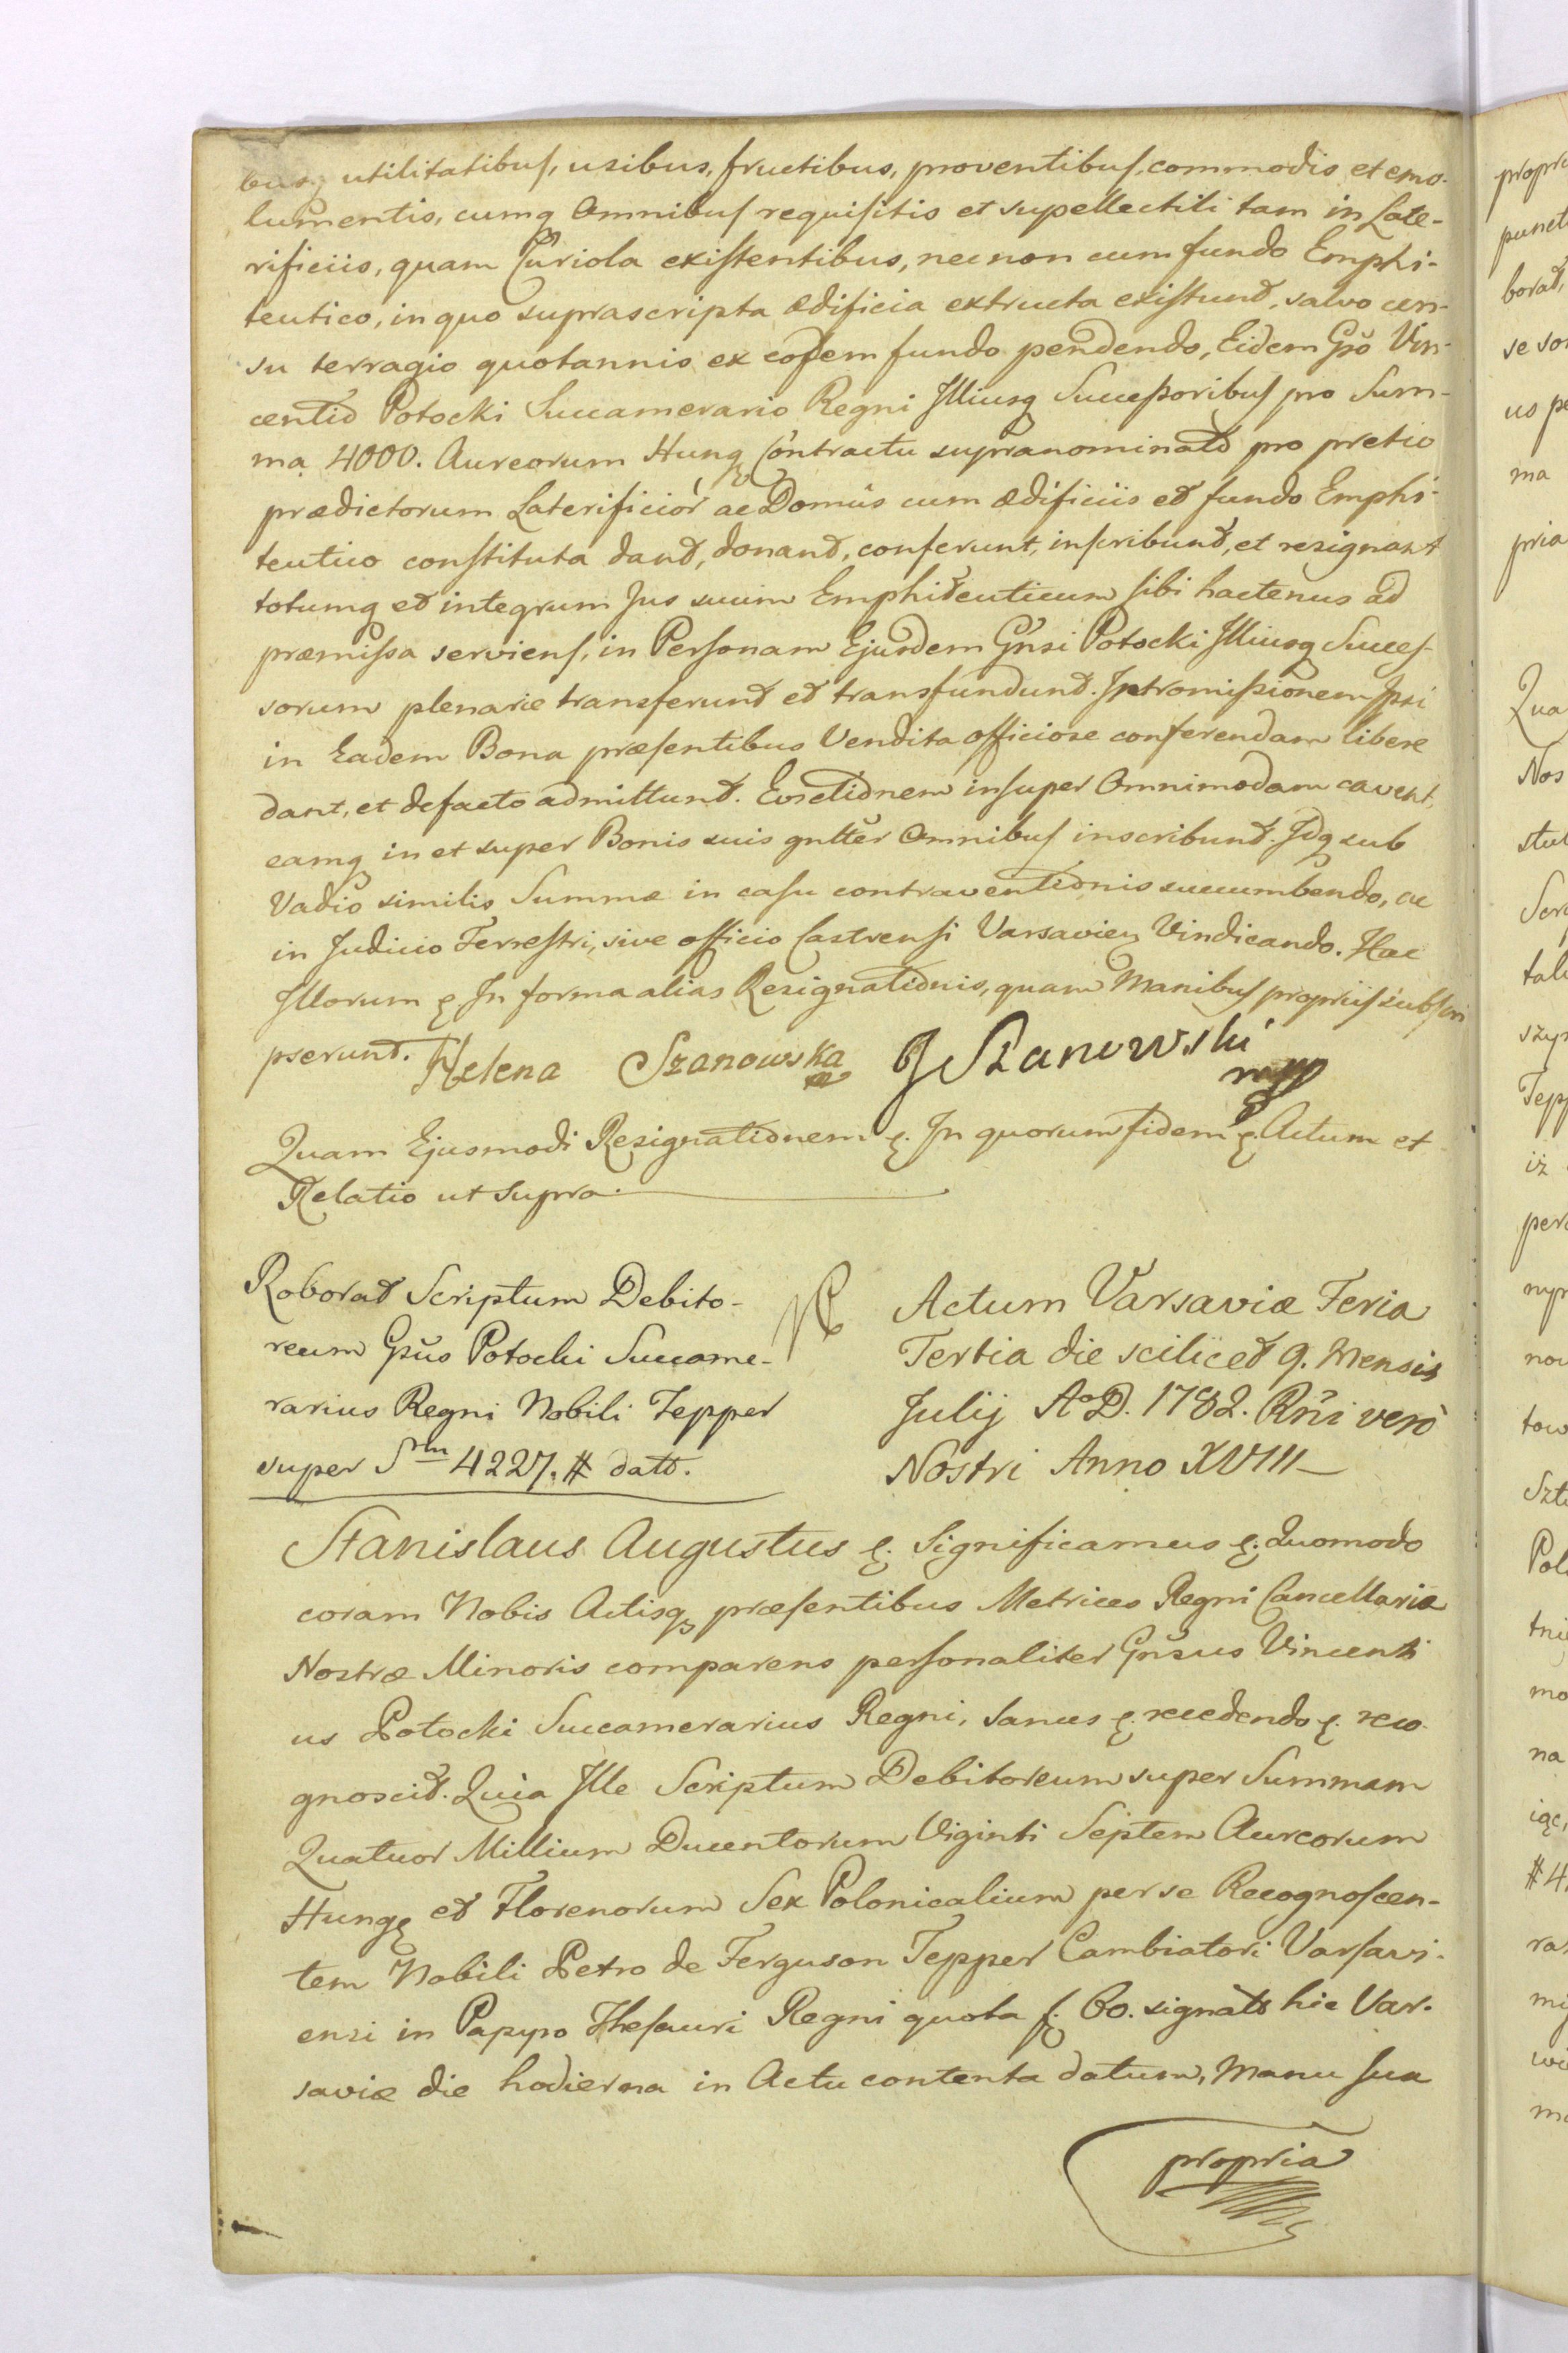 busq utilitatibus, usibus, fructibus, proventibus, commodis et emo-
lumentis, cumq Omnibus requisitis et supellectili tam in Late-
rificiis, quam Curiola existentibus, nec non cum fundo Emphi-
teutico, in quo suprascripta ædificia extructa existunt, salvo cen-
su terragio quotannis ex eodem fundo pendendo, Eidem Gso Vin-
centio Potocki Succamerario Regni Illiusq Successoribus pro Sum-
ma 4000. Aureorum Hung Contractu supranominato pro pretio
prædictorum Laterificior ac Domûs cum ædificiis et fundo Emphi-
teutico constituta dant, donant, conferunt, inscribunt, et resignant
totumq et integrum Jus suum Emphiteuticum sibi hactenus ad
præmissa serviens, in Personam Ejusdem Gnsi Potocki Illiusq Succes-
sorum plenarie transferunt et transfundunt. Intromissionem Ipsi
in Eadem Bona præsentibus Vendita officiose conferendam libere
dant, et defacto admittunt. Evictionem insuper Omnimodam cavent,
eamq in et super Bonis suis gnlter Omnibus inscribunt. Idq sub
Vadio similis Summæ in casu contraventionis succumbendo, ac
in Judicio Terrestri, sive officio Castrensi Varsavien Vindicando. Hac
Illorum ę In forma alias Resignationis, quam Manibus propriis subscri
pserunt. Helena Szanowska J Szanowski mpp
Quam Ejusmodi Resignationem ę. In quorum fidem ę. Actum et
Relatio ut supra.
Roborat Scriptum Debito-
reum Gsus Potocki Succame-
rarius Regni Nobili Tepper
super Sm 4227. # dato.
Actum Varsaviæ Feria
Tertia die scilicet 9. Mensis
Julij Ao D. 1782. Rni verò
Nostri Anno XVIII
Stanislaus Augustus ę. Significamus ę. Quomodo
coram Nobis Actisq præsentibus Metrices Regni Cancellariæ
Nostræ Minoris comparens personaliter Gnsus Vincenti
us Potocki Succamerarius Regni, Sanus ę. recedendo ę. reco-
gnoscit. Quia Ille Scriptum Debitoreum super Summam
Quatuor Millium Ducentorum Viginti Septem Aureorum
Hung et Florenorum Sex Polonicalium per se Recognoscen-
tem Nobili Petro de Ferguson Tepper Cambiatori Varsavi-
ensi in Papyro Thesauri Regni quota f. 60. signato hic Var-
saviæ die hodierna in Actu contenta datum, Manu sua
propria